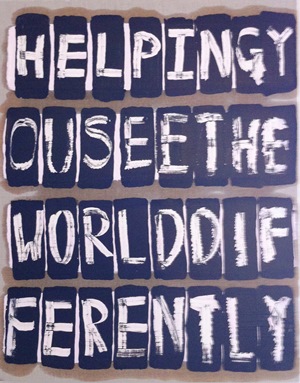 HELPINGY
OUSEETHE
WORLDDIF
FERENTLY